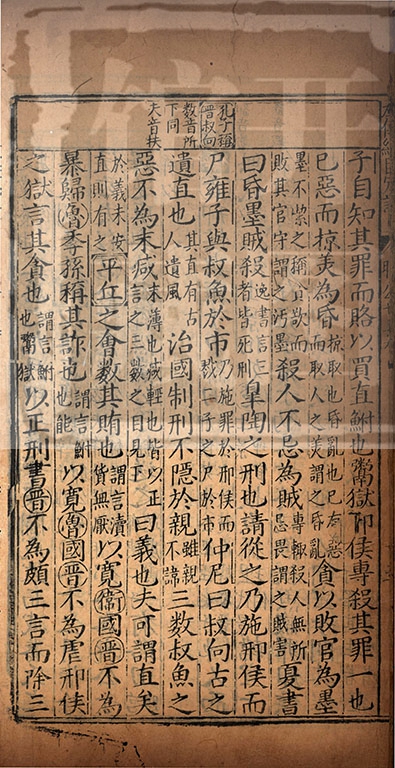 孔丁稱
晉叔向
數音所
下同
夫音扶
子自知其罪而賂以買直鮒也鬻獄邢侯專殺其罪一也
已惡而掠美為昏掠取也昏亂也已有惡而取人之美謂之昏亂貪以敗官為墨
墨不㓗之稱貪欲而敗其官守謂之污墨殺人不忌為賊專輒殺人無所忌畏謂之賊害夏書
曰昏墨賊殺逸書言三者皆死刑皐陶之刑也請從之乃施邢侯而
尸雍子與叔魚於市乃施罪於邢侯而戮二子之尸於市仲尼曰叔向古之
遺直也其直有古人遺風治國制刑不隱於親雖親不諱三數叔魚之
惡不為末減末薄也減輕也皆以正言之三數之曰見下曰義也夫可謂直矣
於義未安直則有之平丘之會數其賄也謂言瀆貨無厭以寬衛國晉不為
暴歸魯季孫稱其詐也謂言鮒也能以寬魯國晉不為虐邢侯
之獄言其貪也謂言鮒也鬻獄以正刑書晉不為頗三言而除三